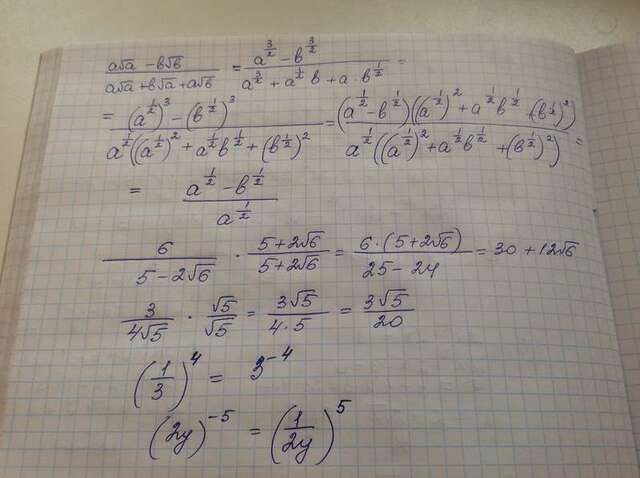 (a√a - b√b)/(a√a + b√a + a√b) = (a^(3/2) - b^(3/2))/(a^(3/2) + a^(1/2) b + a · b^(1/2)) =
= ((a^(1/2))^3 - (b^(1/2))^3)/(a^(1/2)((a^(1/2))^2 + a^(1/2)b^(1/2) + (b^(1/2))^2) = (a^(1/2) - b^(1/2))((a^(1/2))^2 + a^(1/2)b^(1/2) + (b^(1/2))^2)/(a^(1/2)((a^(1/2))^2 + a^(1/2)b^(1/2) + (b^(1/2))^2)) =
= (a^(1/2) - b^(1/2))/a^(1/2)
6/(5 - 2√6) · (5 + 2√6)/(5 + 2√6) = 6·(5 + 2√6)/(25 - 24) = 30 + 12√6
3/(4√5) · √5/√5 = 3√5/(4·5) = 3√5/20
(1/3)^4 = 3^(-4)
(2y)^(-5) = (1/(2y))^5